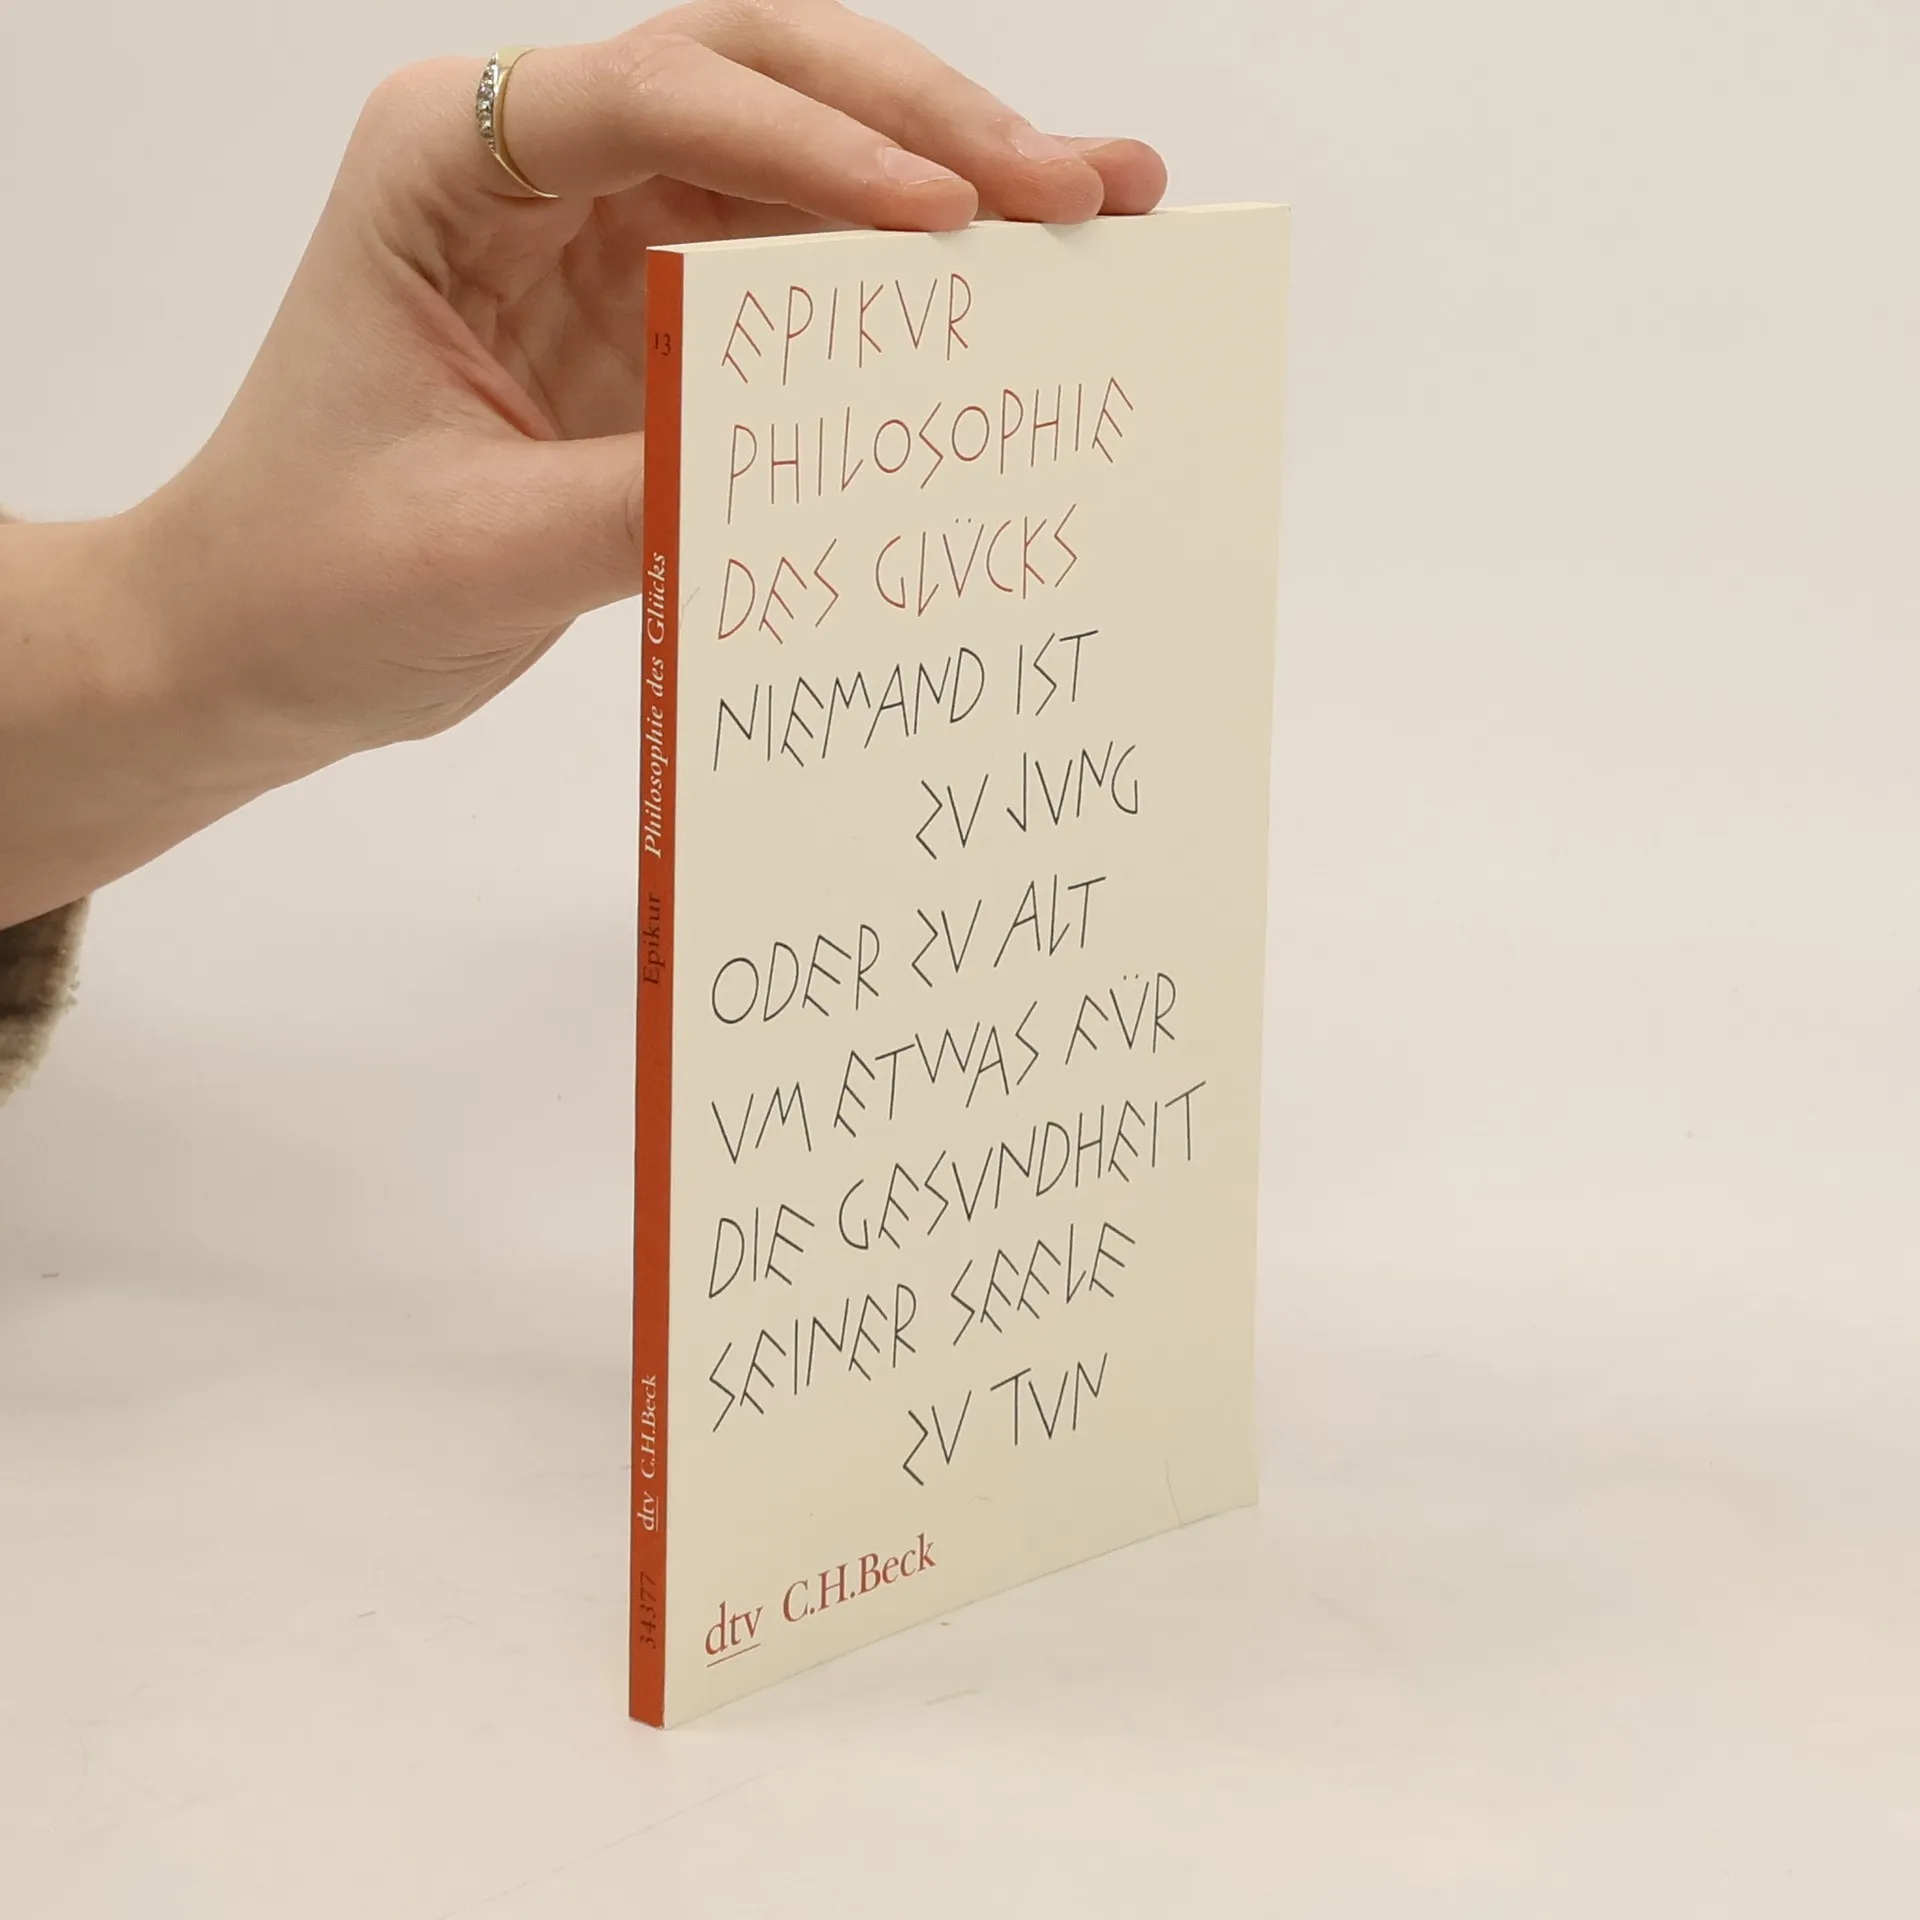 EPIKVR
PHILOSOPHIE
DES GLV̈CKS
NIEMAND IST
ZV JVNG
ODER ZV ALT
VM ETWAS FV̈R
DIE GESVNDHEIT
SEINER SEELE
ZV TVN
dtv C.H.Beck
13
Epikur Philosophie des Glücks
34377 dtv C.H.Beck